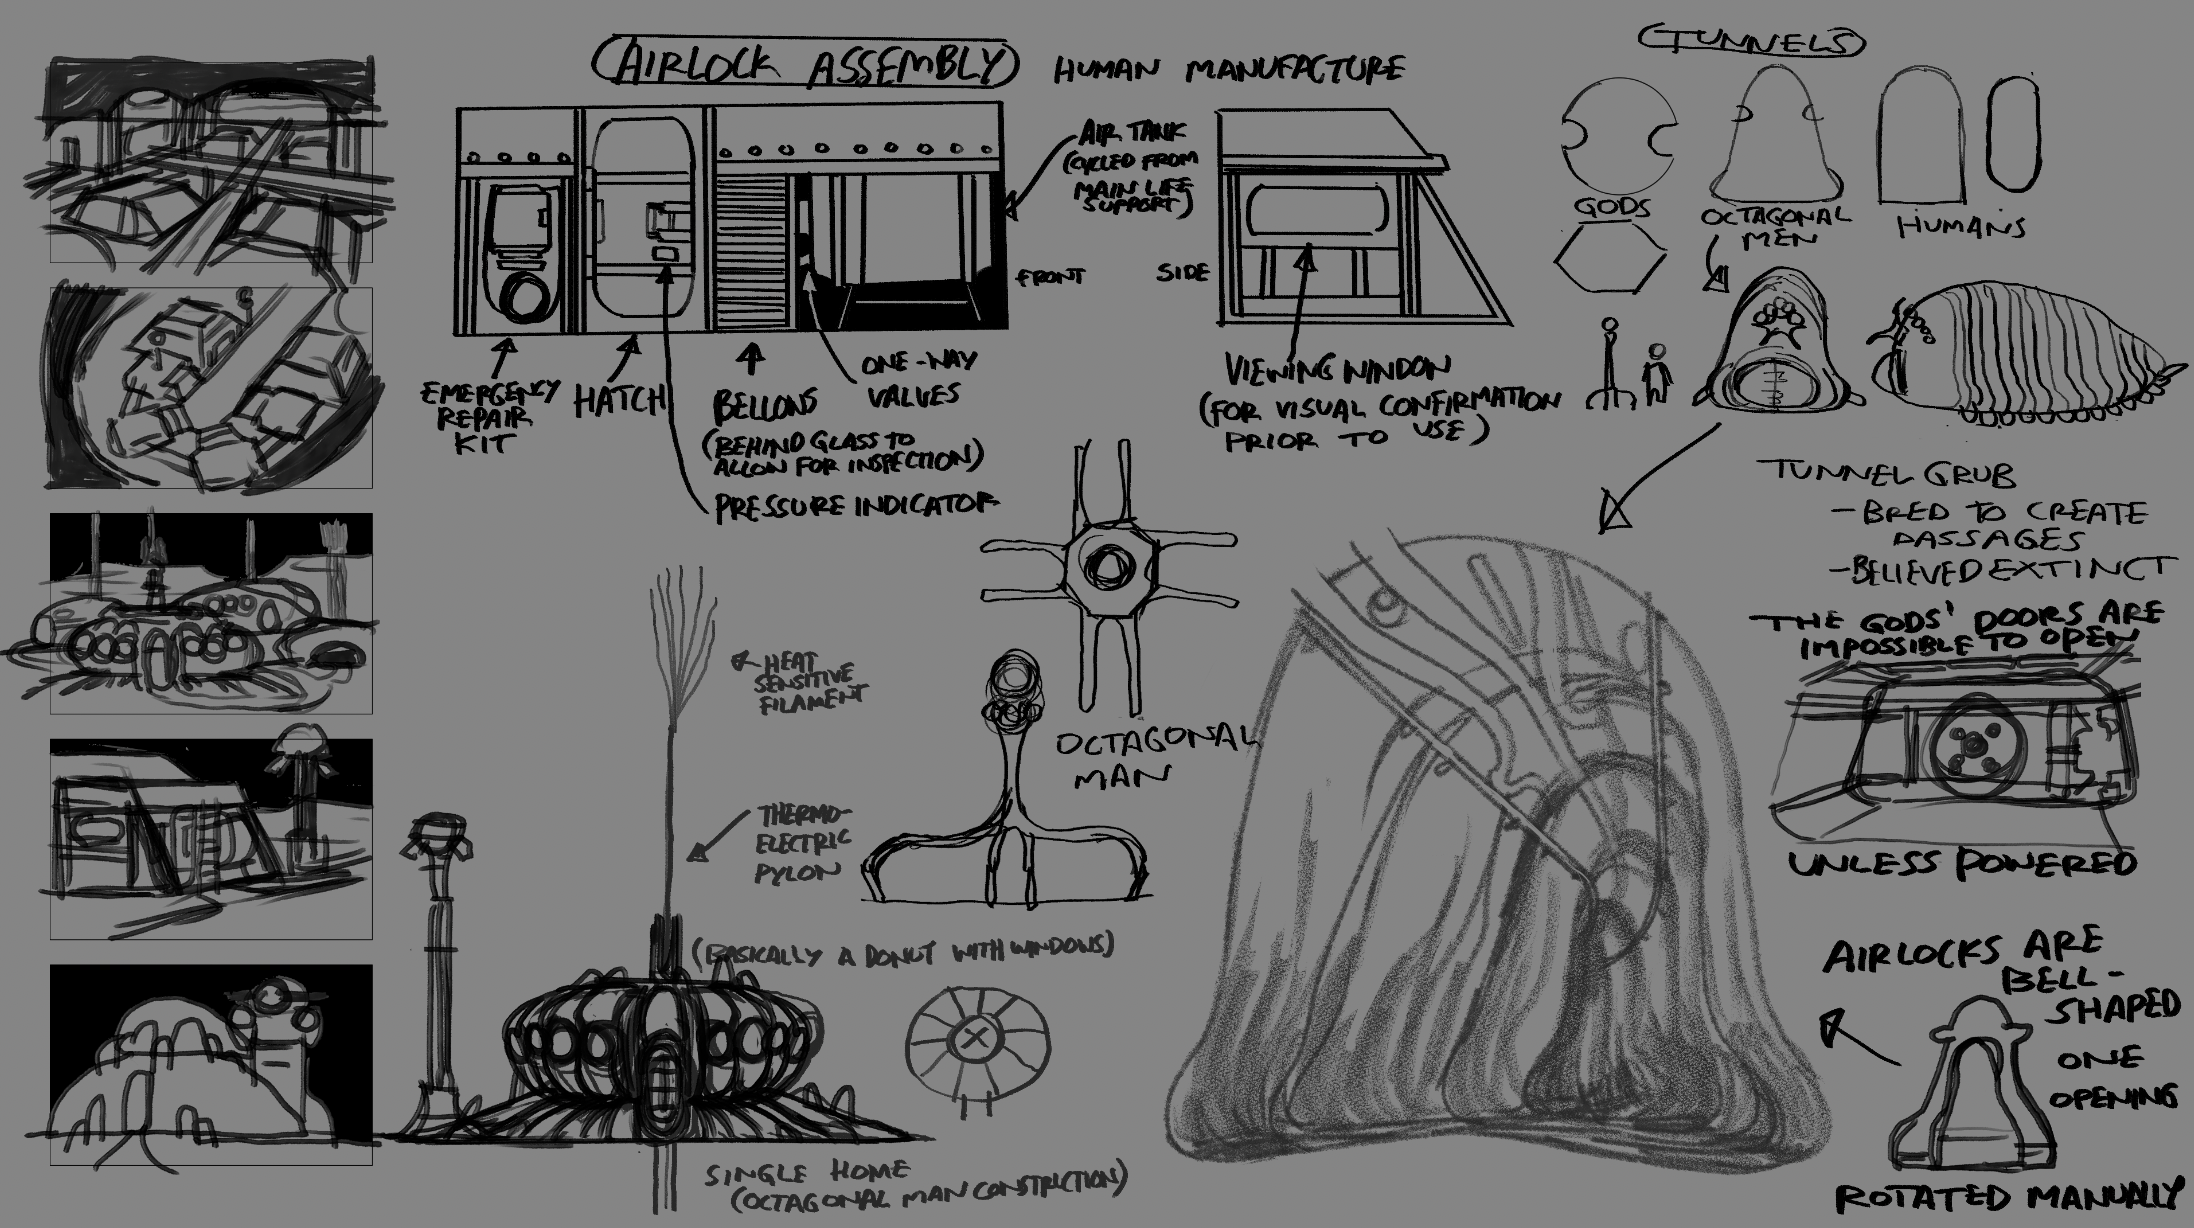 AIRLOCK ASSEMBLY
HUMAN MANUFACTURE
AIR TANK
(CYCLED FROM
MAIN LIFE
SUPPORT)
FRONT
SIDE
EMERGENCY
REPAIR
KIT
HATCH
BELLOWS
(BEHIND GLASS TO
ALLOW FOR INSPECTION)
PRESSURE INDICATOR
ONE-WAY
VALVES
VIEWING WINDOW
(FOR VISUAL CONFIRMATION
PRIOR TO USE)
TUNNELS
GODS
OCTAGONAL
MEN
HUMANS
TUNNEL GRUB
- BRED TO CREATE
PASSAGES
- BELIEVED EXTINCT
THE GODS' DOORS ARE
IMPOSSIBLE TO OPEN
UNLESS POWERED
AIRLOCKS ARE
BELL-
SHAPED
ONE
OPENING
ROTATED MANUALLY
OCTAGONAL
MAN
HEAT
SENSITIVE
FILAMENT
THERMO-
ELECTRIC
PYLON
(BASICALLY A DONUT WITH WINDOWS)
SINGLE HOME
(OCTAGONAL MAN CONSTRICTION)